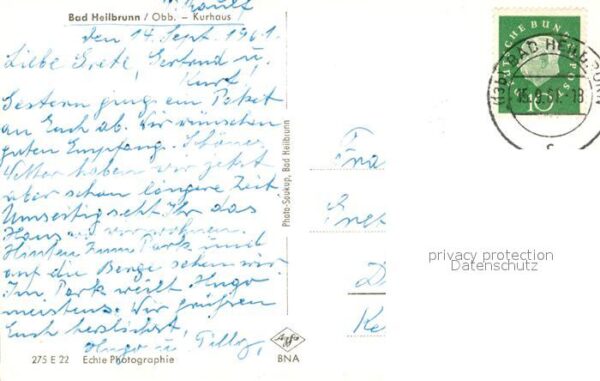 Bad Heilbrunn / Obb. – Kurhaus
den 14. Sept. 1961.
Liebe Grete, Gertrud u.
Kurt!
Gestern ging ein Paket
an Euch ab. Wir wünschen
guten Empfang. Schönes
Wetter haben wir jetzt
aber schon längere Zeit.
seht Ihr das
Haus wo wir wohnen.
Hinten zum Park und
auf die Berge sehen wir.
Im Park weilt Hugo
meistens. Wir grüßen
Euch herzlichst,
Hugo u. Tilly,
275 E 22 Echte Photographie
Agfa
BNA
Photo-Soukup, Bad Heilbrunn
DEUTSCHE BUNDESPOST
10
(13b) BAD HEILBRUNN
15.9.61-18
c
Fra
Gret
D
Ke
privacy protection
Datenschutz